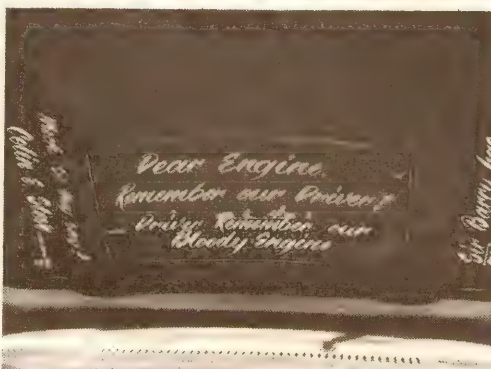 Dear Engine.
Remember our Drivers
Driver Remember our
Bloody Engine
Colin &
Sir Barry